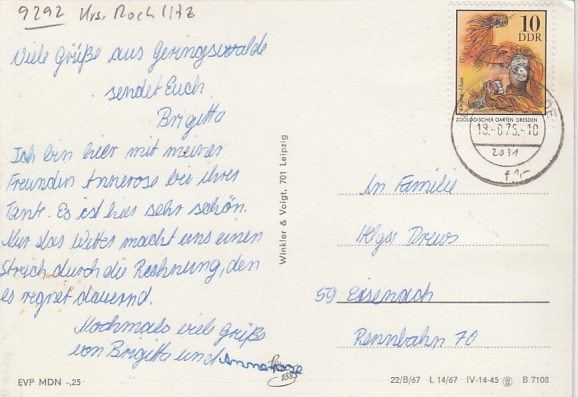 9292 Krs. Rochlitz
Viele Grüße aus Geringswalde
sendet Euch
Brigitta
Ich bin hier mit meiner
Freundin Annerose bei ihrer
Tante. Es ist hier sehr schön.
Nur das Wetter macht uns einen
Strich durch die Rechnung, den
es regnet dauernd.
Nochmals viele Grüße
von Brigitta und Annerose
EVP MDN -,25
Winkler & Voigt, 701 Leipzig
10
DDR
ZOOLOGISCHER GARTEN DRESDEN
2031
f 1,-
An Familie
Holger Drews
59 Eisenach
Rennbahn 70
22/B/67 L 14/67 IV-14-45 B 7108